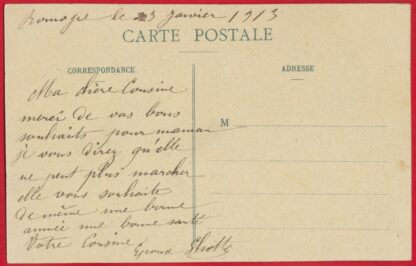 Romazy le 23 janvier 1913
CARTE POSTALE
CORRESPONDANCE
ADRESSE
Ma chère Cousine
merci de vos bons
souhaits pour maman
M
je vous direz qu'elle
ne peut plus marcher
elle vous souhaite
de même une bonne
année une bonne santé
Votre Cousine
Epoux